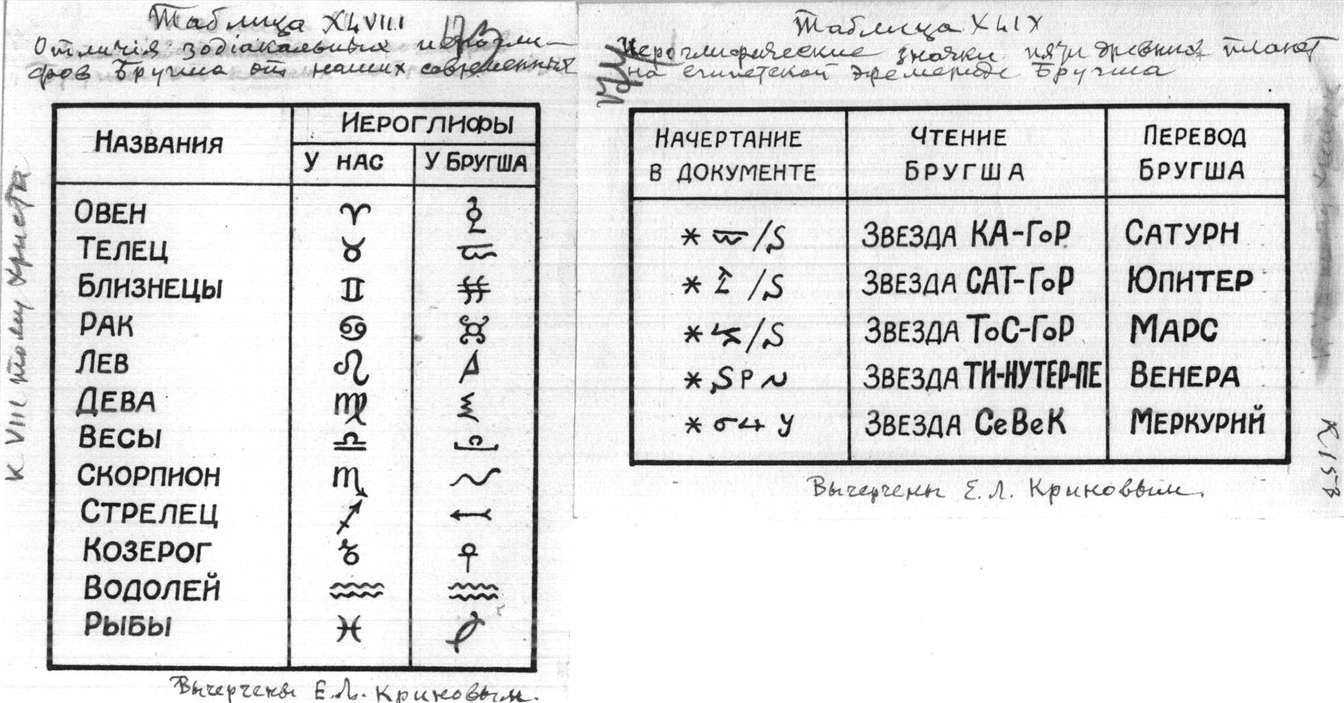 Таблица XLVIII
Отличія зодіакальных иерогли-
фов Бругша от наших современных
НАЗВАНИЯ
ИЕРОГЛИФЫ
У НАС
У БРУГША
ОВЕН ♈
ТЕЛЕЦ ♉
БЛИЗНЕЦЫ ♊
РАК ♋
ЛЕВ ♌
ДЕВА ♍
ВЕСЫ ♎
СКОРПИОН ♏
СТРЕЛЕЦ ♐
КОЗЕРОГ ♑
ВОДОЛЕЙ ♒
РЫБЫ ♓
Вычерчены Е.Л. Криновым.
К VIII тому Христа
Таблица XLIX
Иероглифические значки пяти древних планет
на египетской эфемериде Бругша
НАЧЕРТАНИЕ В ДОКУМЕНТЕ
ЧТЕНИЕ БРУГША
ПЕРЕВОД БРУГША
ЗВЕЗДА КА-ГоР САТУРН
ЗВЕЗДА САТ-ГоР ЮПИТЕР
ЗВЕЗДА ТоС-ГоР МАРС
ЗВЕЗДА ТИ-НУТЕР-ПЕ ВЕНЕРА
ЗВЕЗДА СеВеК МЕРКУРИЙ
Вычерчены Е.Л. Криновым.